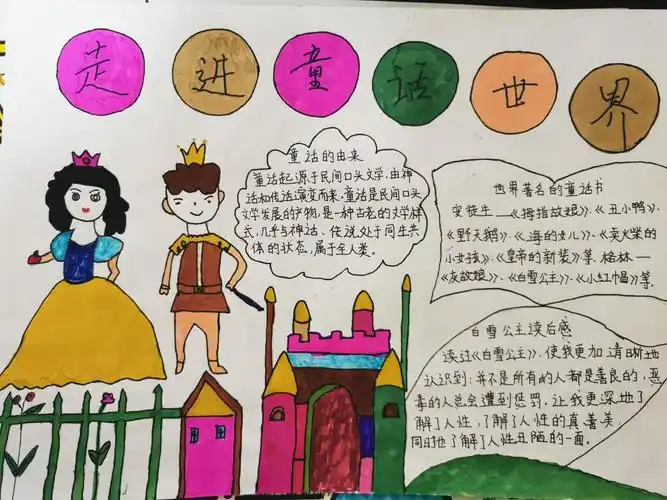 走进童话世界
童话的由来
童话起源于民间口头文学,由神
话和传说演变而来.童话是民间口头
文学发展的产物,是一种古老的文学样
式,几乎与神话、传说处于同生共
体的状态,属于全人类。
世界著名的童话书
安徒生——《拇指故娘》、《丑小鸭》、
《野天鹅》、《海的女儿》、《卖火柴的
小女孩》、《皇帝的新装》等.格林—
《灰故娘》、《白雪公主》、《小红帽》等.
白雪公主读后感
读过《白雪公主》,使我更加清晰地
认识到:并不是所有的人都是善良的,恶
毒的人总会遭到惩罚,让我更深地了
解了人性,了解了人性的真善美,
同时也了解了人性丑陋的一面。